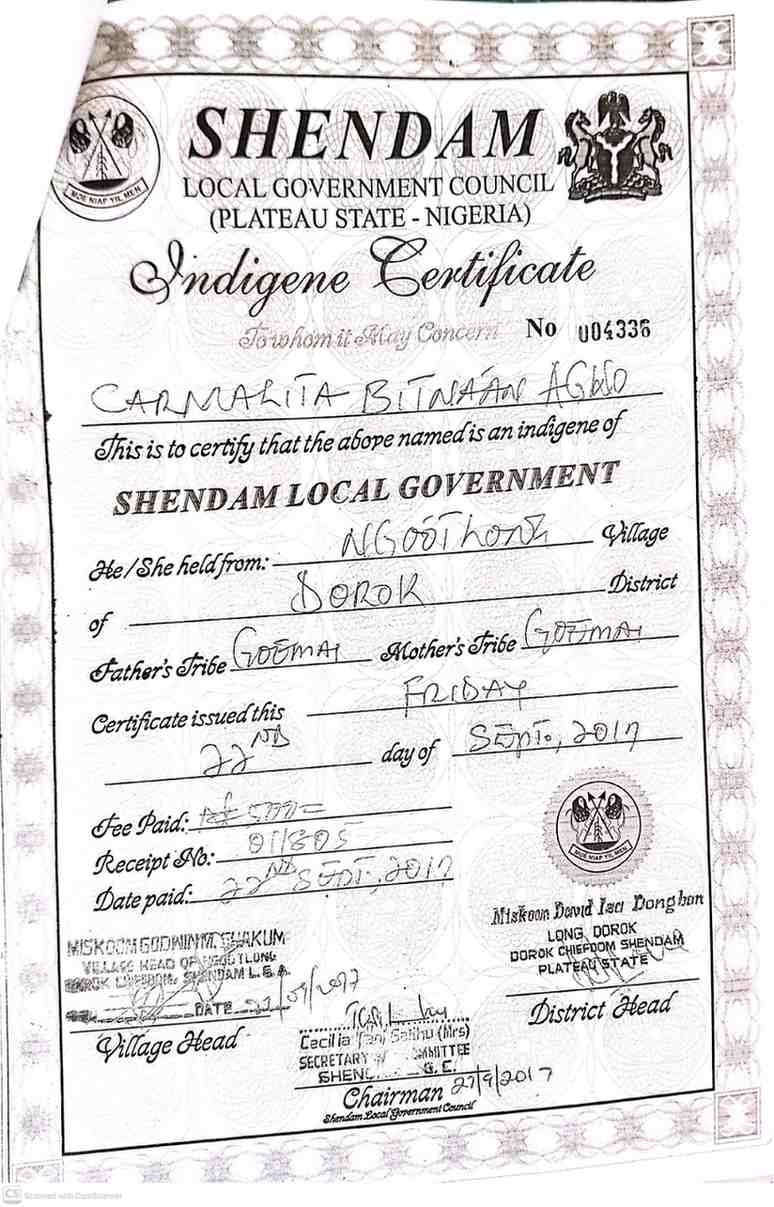 SHENDAM
LOCAL GOVERNMENT COUNCIL
(PLATEAU STATE - NIGERIA)
MOE NIAP YIL MEN
Indigene Certificate
To whom it May Concern No 004336
CARMALITA BITNAAN AGWO
This is to certify that the above named is an indigene of
SHENDAM LOCAL GOVERNMENT
He/She held from: Village
of DOROK District
Father's Tribe GOEMAI Mother's Tribe GOEMAI
Certificate issued this FRIDAY
22ND day of SEPT., 2017
Fee Paid:
Receipt No: 011805
Date paid: 22ND SEPT., 2017
MOE NIAP YIL MEN
Miskoom David Isa Donghon
LONG DOROK
DOROK CHIEFDOM SHENDAM
PLATEAU STATE
District Head
MISKOOM GODWIN M. SHAKUM
VILLAGE HEAD OF
CHIEFDOM, SHENDAM L.G.A.
DATE
Village Head
Cecilia Salihu (Mrs)
SECRETARY
G. C.
27/9/2017
Chairman
Shendam Local Government Council
CS Scanned with CamScanner